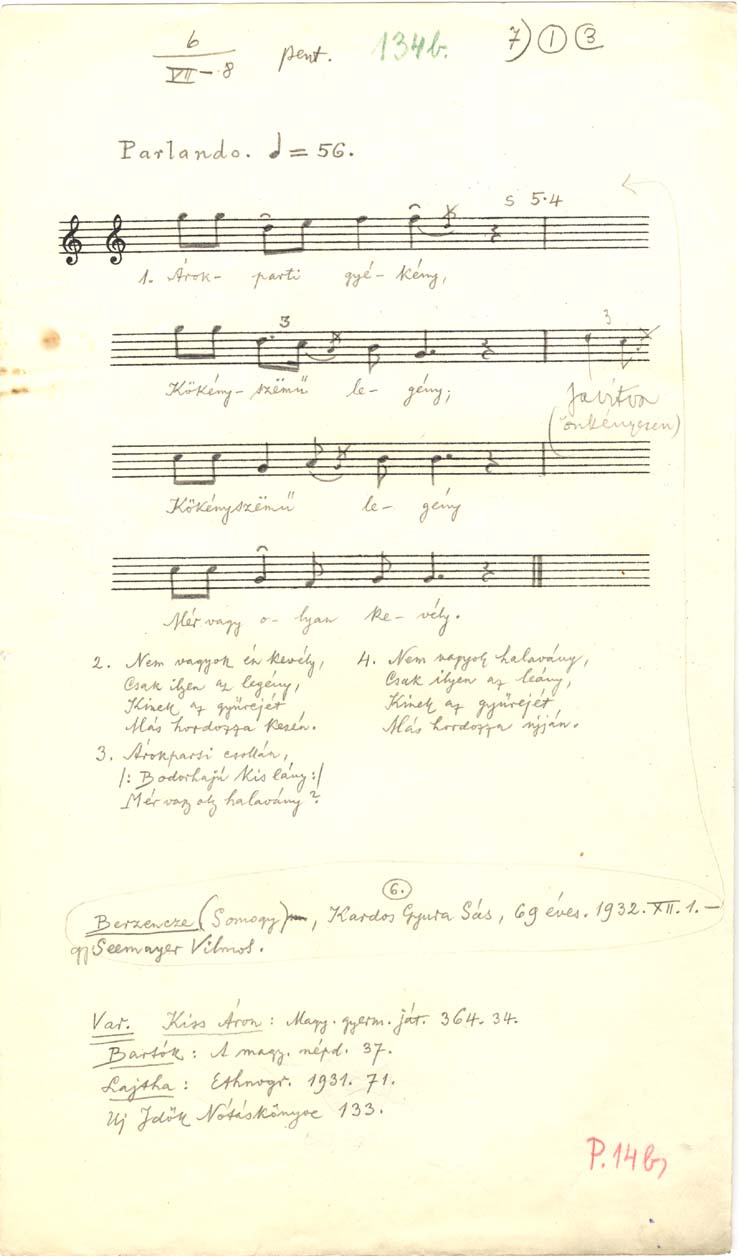 6
VII-8
pent. 134b. 7) 1 3
Parlando. ♩ = 56.
5 5·4
1. Árok- parti gyé- kény,
3 3
Kökény- szëmű le- gény;
Javítva
(önkényesen)
Kökényszëmű le- gény
Mér vagy o- lyan ke- vély.
2. Nem vagyok én kevély,
Csak ilyen az legény,
Kinek az gyűrejét
Más hordozza kezén.
3. Árokparsi csollán,
/: Bodorhajú kis lány :/
Mér vagy oly halavány?
4. Nem vagyok halavány,
Csak ilyen az leány,
Kinek az gyűrejét
Más hordozza ujján.
6.
Berzencze (Somogy), Kardos Gyura Sás, 69 éves. 1932. XII. 1. –
gy Seemayer Vilmos.
Var. Kiss Áron: Magy. gyerm. ját. 364. 34.
Bartók: A magy. népd. 37.
Lajtha: Ethnogr. 1931. 71.
Uj Idők Nótáskönyve 133.
P. 14b,